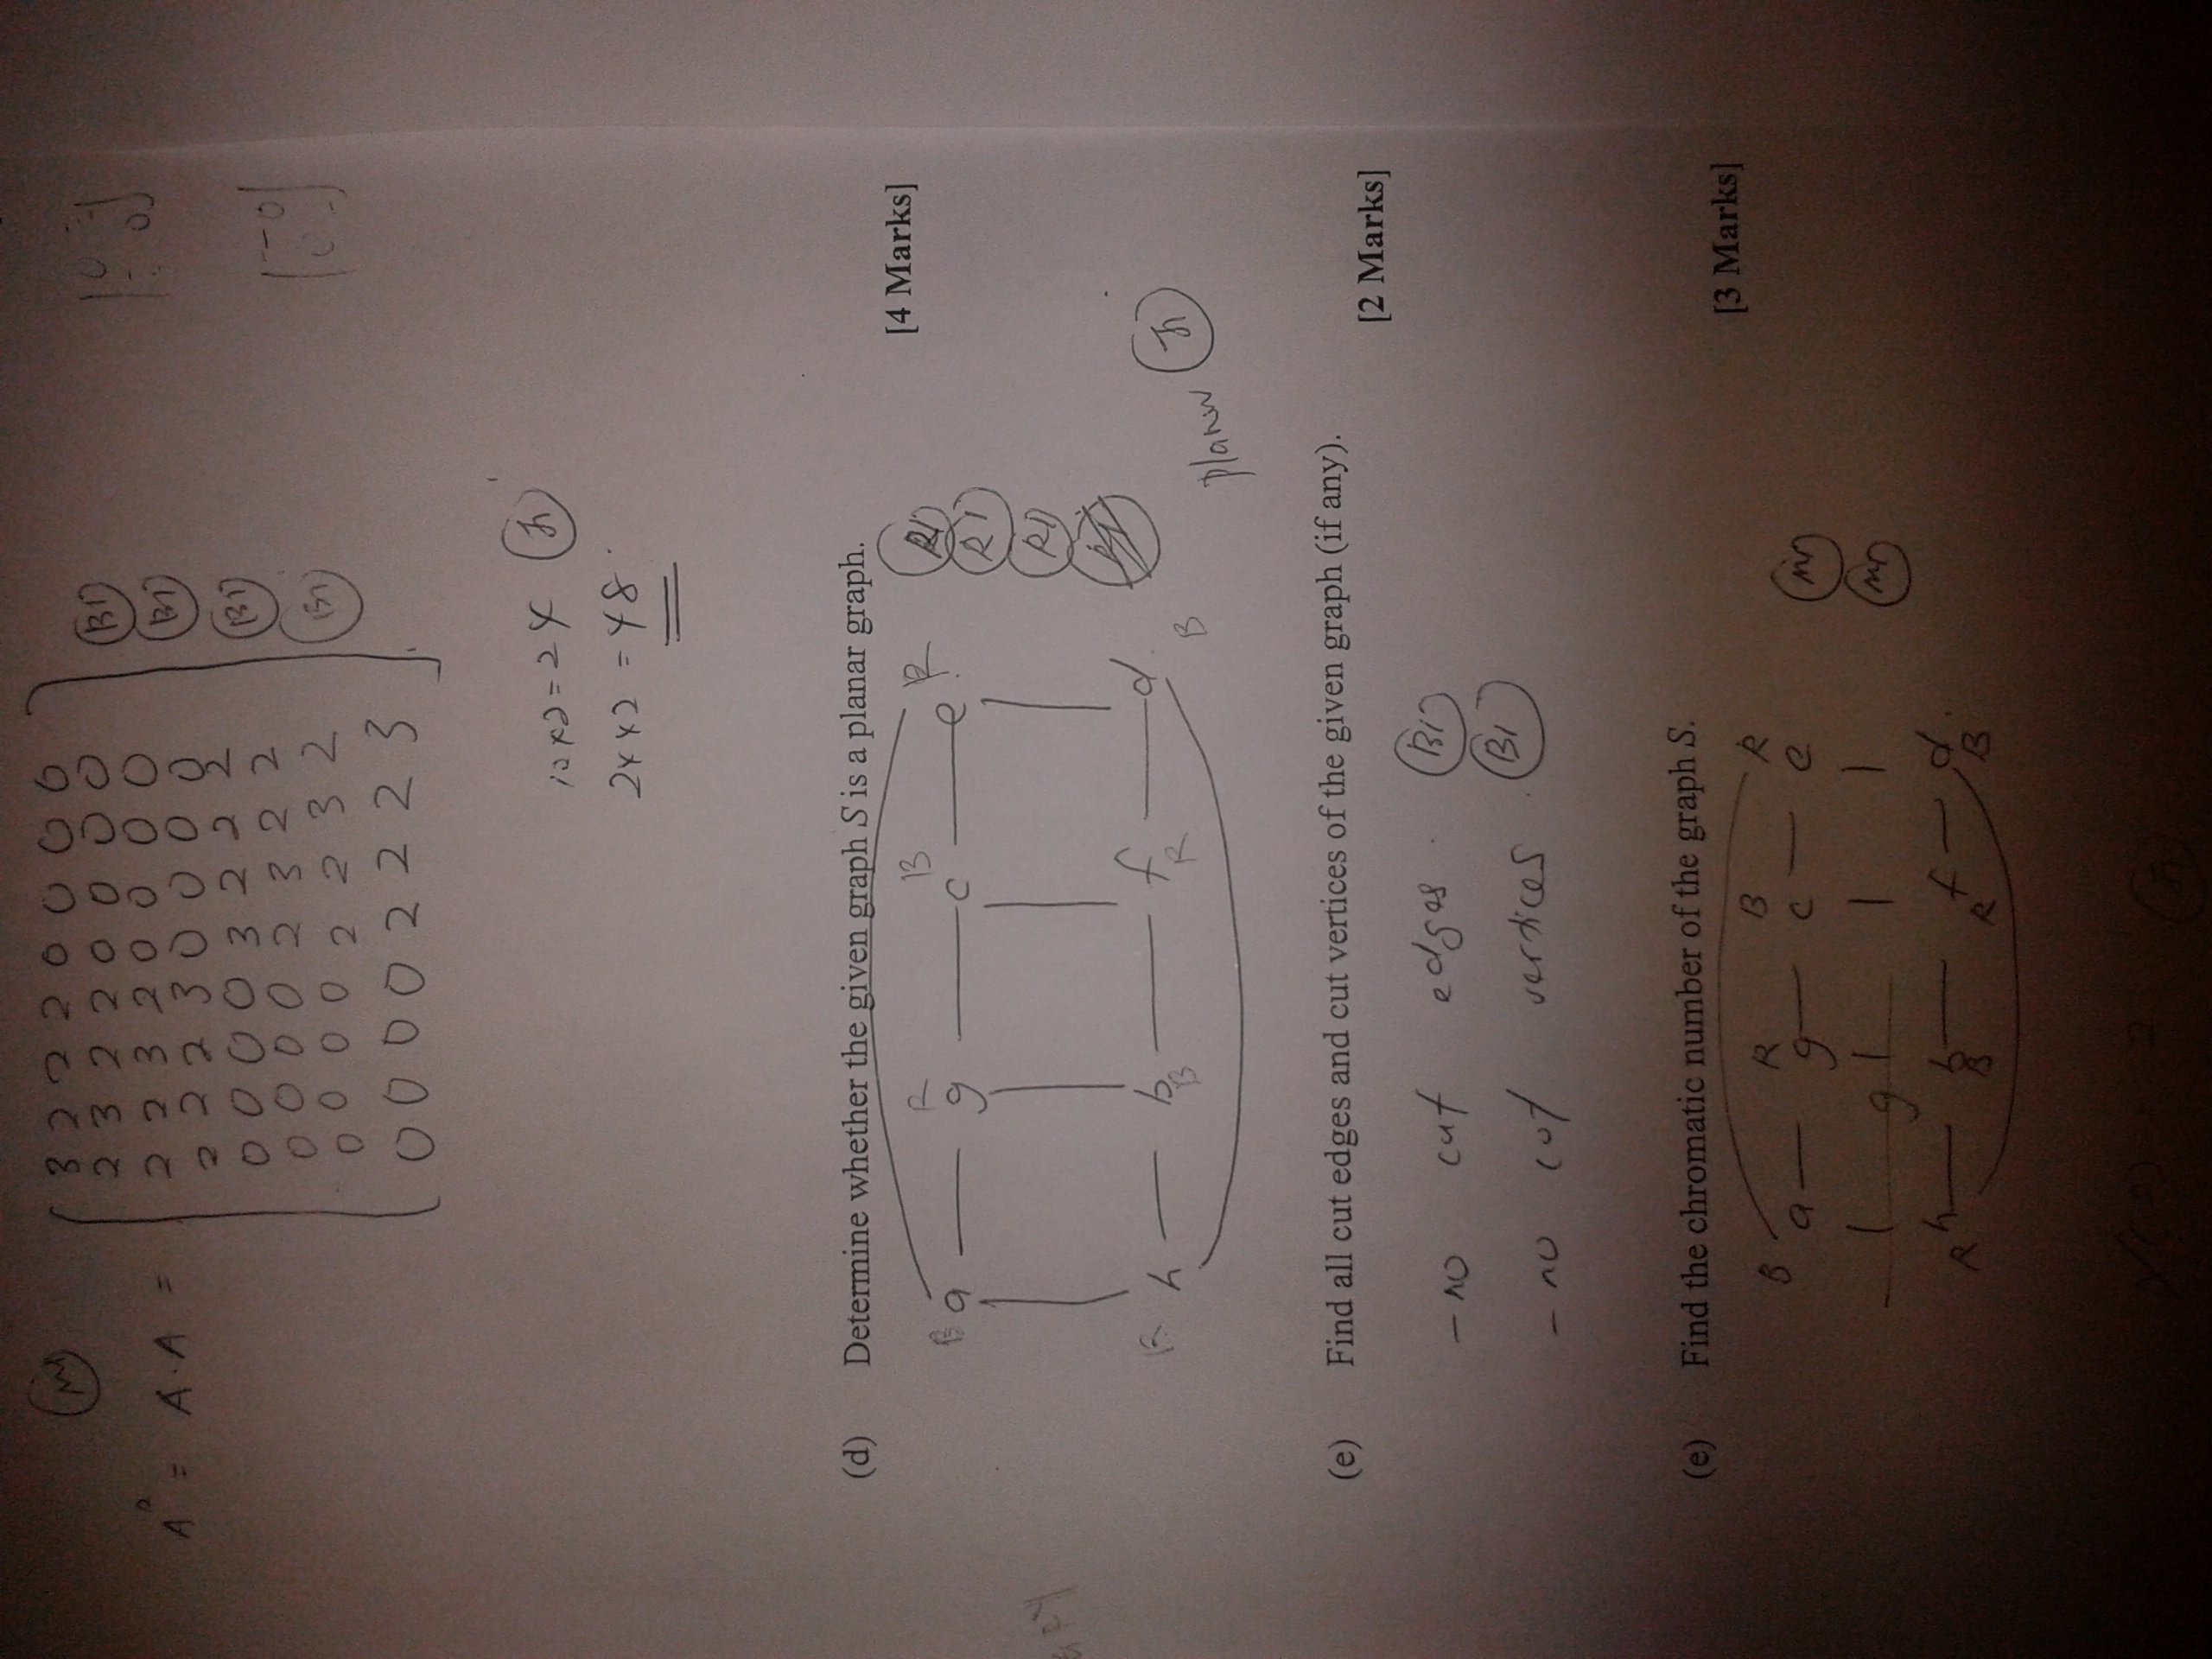 3 2 2 2 0 0 0 0
2 3 2 2 0 0 0 0 B1
A² = A·A = 2 2 3 2 0 0 0 0 B1
2 2 2 3 0 0 0 0
0 0 0 0 3 2 2 2 B1
0 0 0 0 2 3 2 2
0 0 0 0 2 2 3 2 B1
0 0 0 0 2 2 2 3
12×2=24
24×2=48
(d) Determine whether the given graph S is a planar graph.
[4 Marks]
B R B R
a g c e R1
R1
R1
R h b f d
B R B
planar
(e) Find all cut edges and cut vertices of the given graph (if any).
[2 Marks]
- no cut edges. B1
- no cut vertices. B1
(e) Find the chromatic number of the graph S.
[3 Marks]
B R B R
a g c e
g
h b f d.
R B R B